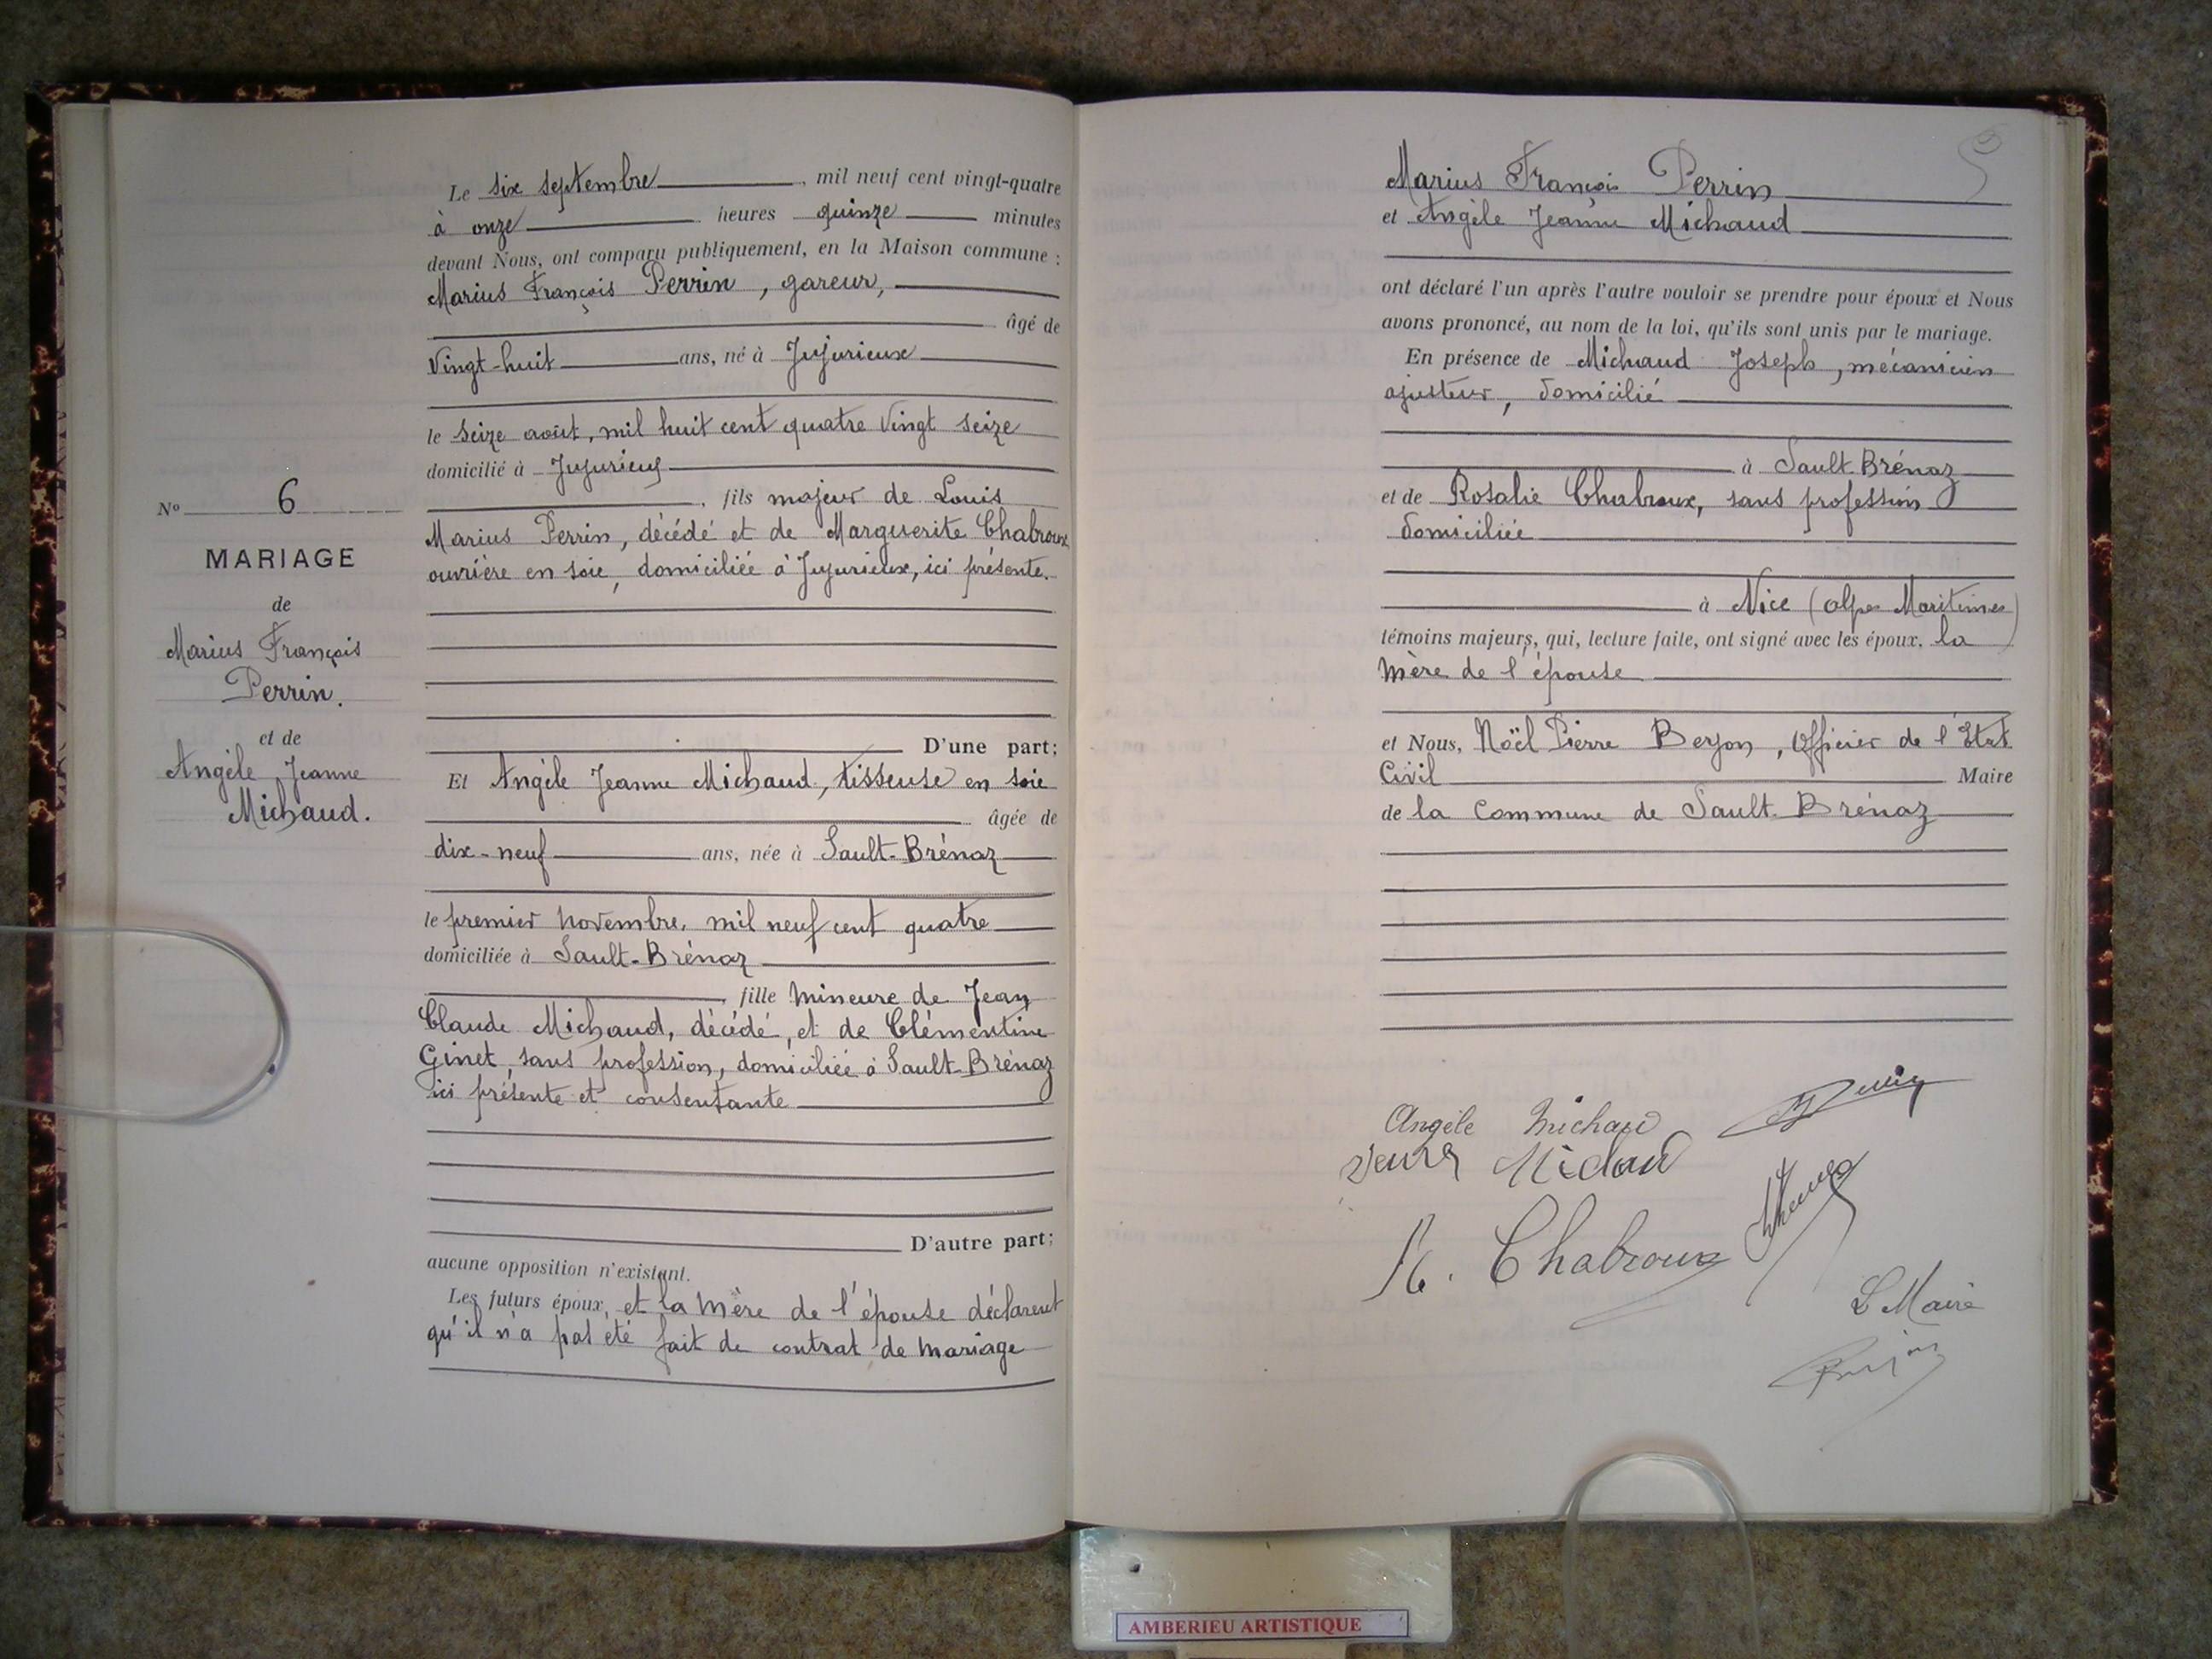 Le six septembre, mil neuf cent vingt-quatre
à onze heures quinze minutes
devant Nous, ont comparu publiquement, en la Maison commune :
Marius François Perrin, gareur,
âgé de
Vingt-huit ans, né à Jujurieux
le seize août, mil huit cent quatre Vingt seize
domicilié à Jujurieux
, fils majeur de Louis
Marius Perrin, décédé et de Marguerite Chabroux
ouvrière en soie, domiciliée à Jujurieux, ici présente.
D'une part;
Et Angèle Jeanne Michaud, tisseuse en soie
âgée de
dix-neuf ans, née à Sault-Brénaz
le premier novembre, mil neuf cent quatre
domiciliée à Sault-Brénaz
, fille mineure de Jean
Claude Michaud, décédé, et de Clémentine
Ginet, sans profession, domiciliée à Sault-Brénaz
ici présente et consentante
D'autre part;
aucune opposition n'existant.
Les futurs époux, et la mère de l'épouse déclarent
qu'il n'a pas été fait de contrat de mariage
No 6
MARIAGE
de
Marius François
Perrin.
et de
Angèle Jeanne
Michaud.
Marius François Perrin
et Angèle Jeanne Michaud
ont déclaré l'un après l'autre vouloir se prendre pour époux et Nous
avons prononcé, au nom de la loi, qu'ils sont unis par le mariage.
En présence de Michaud Joseph, mécanicien
ajusteur, domicilié
à Sault-Brénaz
et de Rosalie Chabroux, sans profession
domiciliée
à Nice (Alpes Maritimes)
témoins majeurs, qui, lecture faite, ont signé avec les époux, la
mère de l'épouse
et Nous, Noël Pierre Berjon, Officier de l'Etat
Civil Maire
de la Commune de Sault-Brénaz
Angèle Michaud
R. Chabroux
Le Maire
AMBERIEU ARTISTIQUE